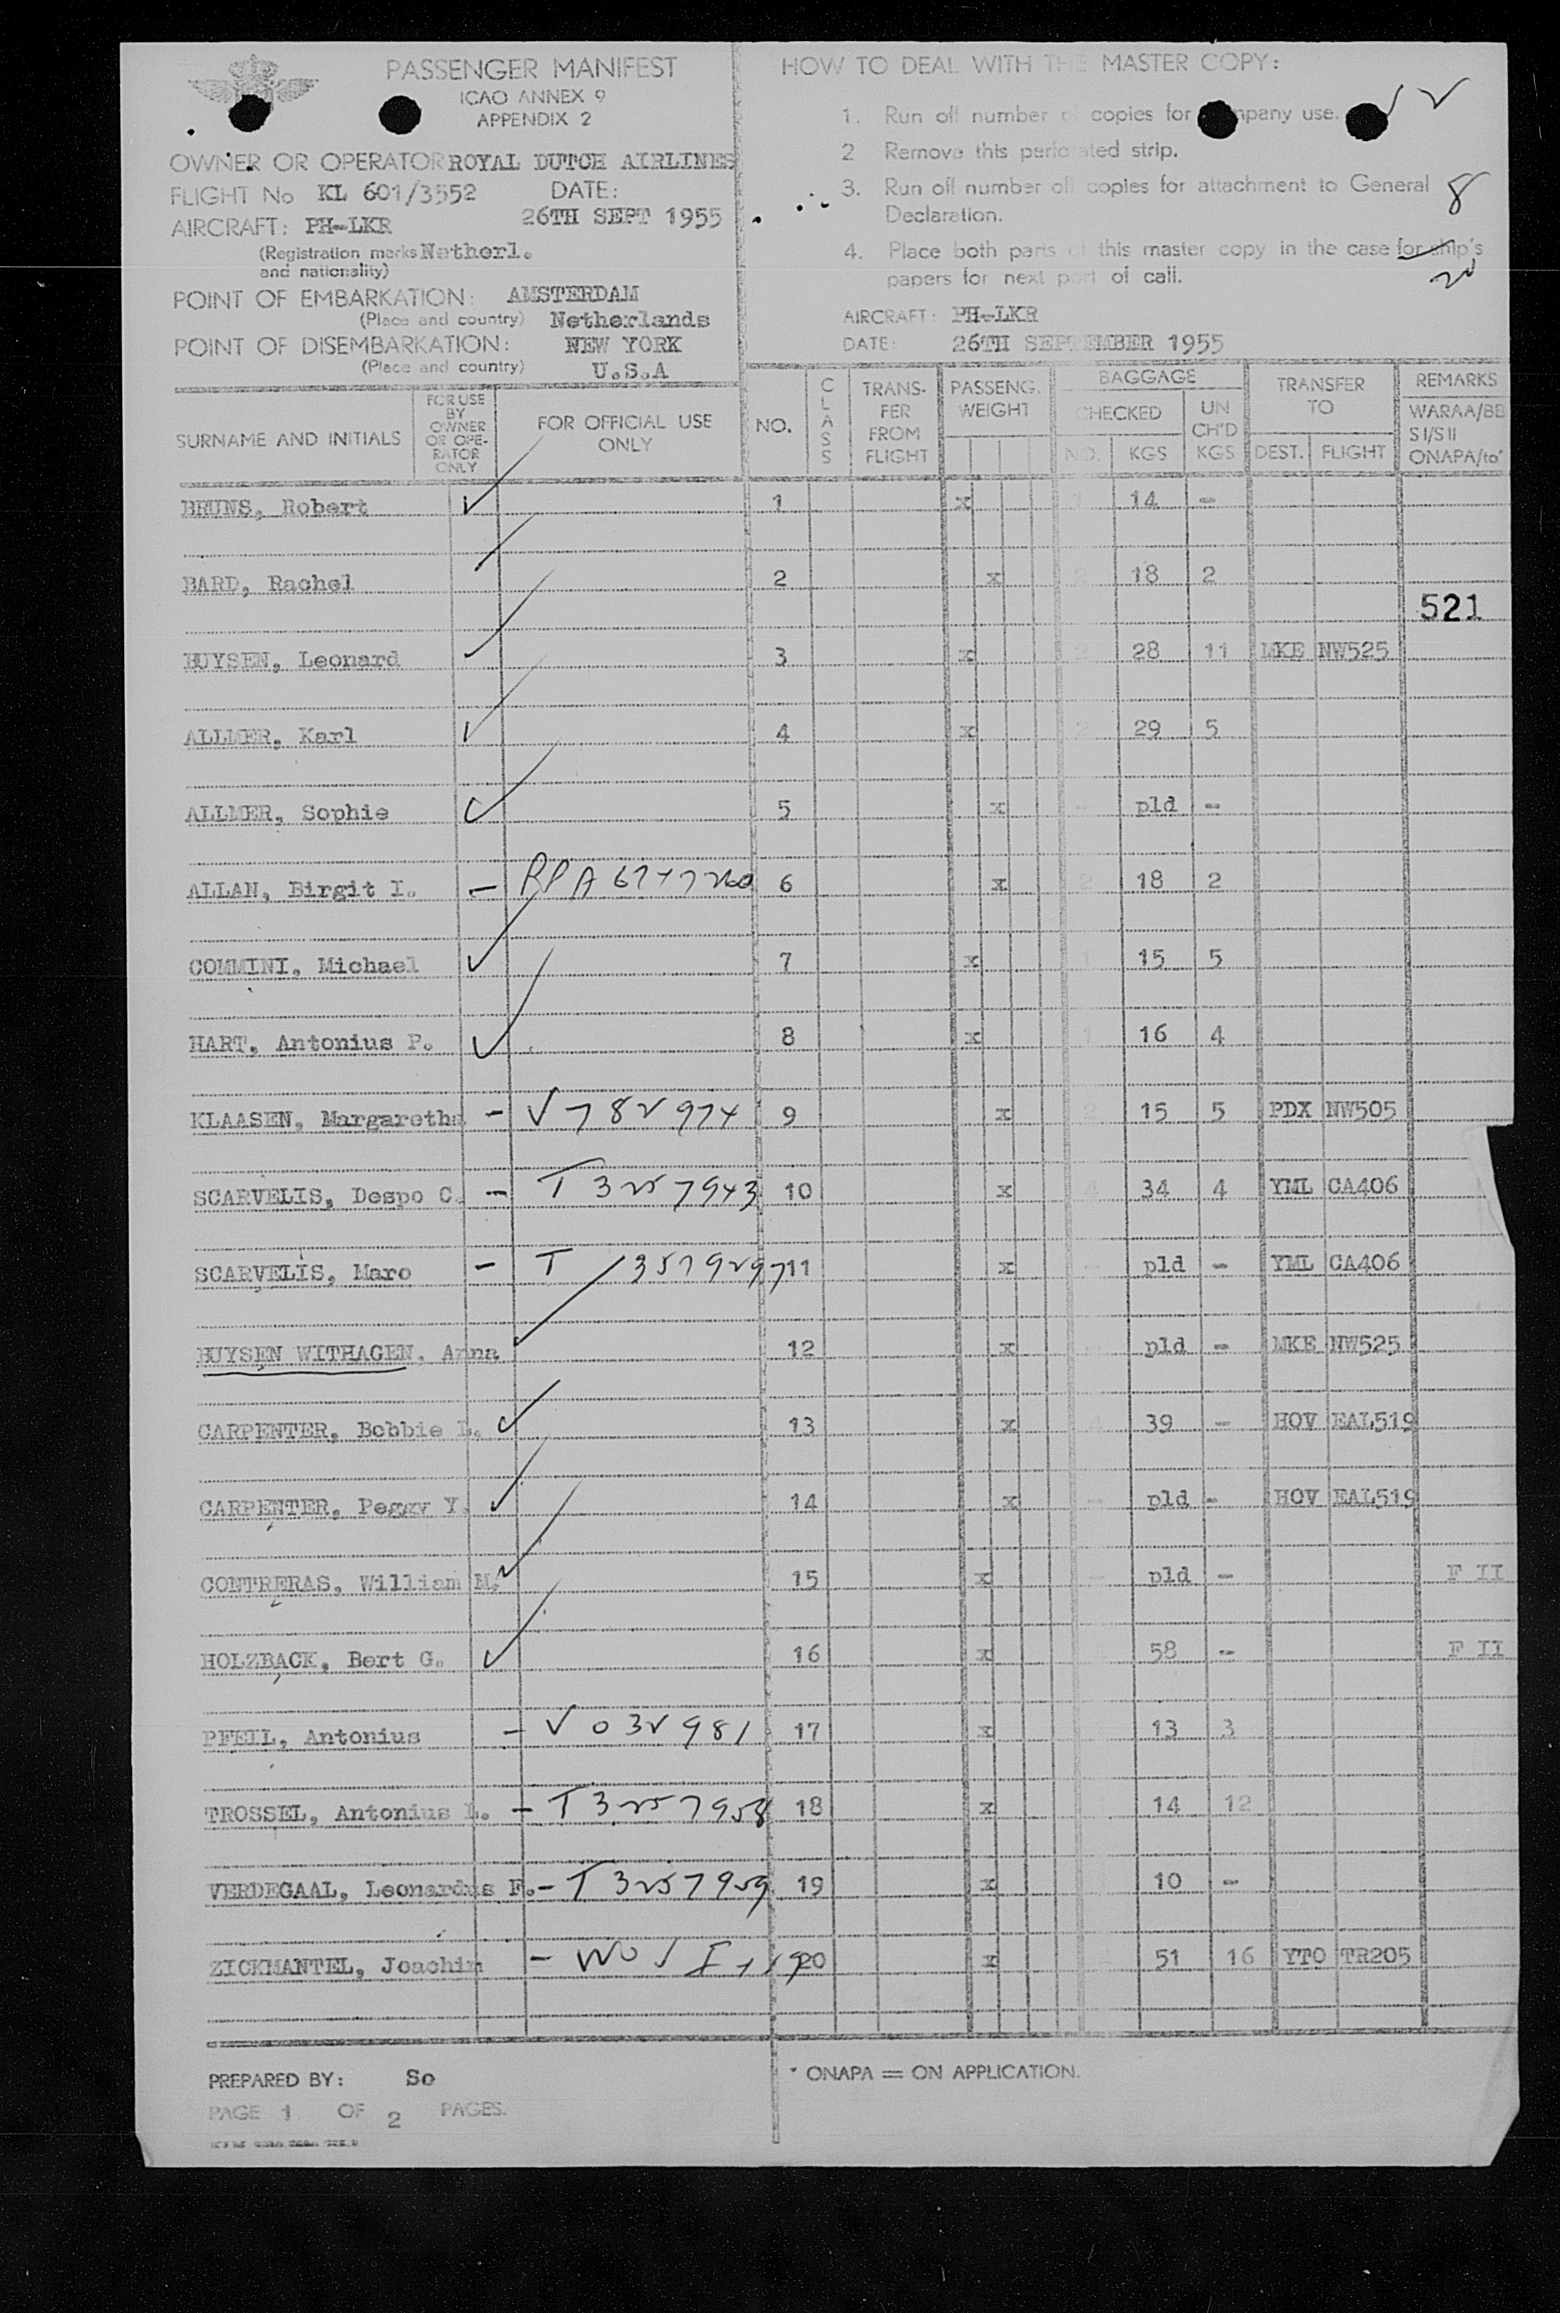 PASSENGER MANIFEST
ICAO ANNEX 9
APPENDIX 2
OWNER OR OPERATOR ROYAL DUTCH AIRLINES
FLIGHT No KL 601/3552 DATE:
26TH SEPT 1955
AIRCRAFT: PH-LKR
(Registration marks Netherl.
and nationality)
POINT OF EMBARKATION: AMSTERDAM
(Place and country) Netherlands
POINT OF DISEMBARKATION: NEW YORK
(Place and country) U.S.A
HOW TO DEAL WITH THE MASTER COPY:
1. Run off number of copies for company use.
2 Remove this perforated strip.
3. Run off number of copies for attachment to General
Declaration.
8
4. Place both parts of this master copy in the case for ship's
papers for next port of call.
20
AIRCRAFT: PH-LKR
DATE: 26TH SEPTEMBER 1955
SURNAME AND INITIALS FOR USE BY OWNER OR OPE- RATOR ONLY FOR OFFICIAL USE ONLY NO. CLASS TRANS- FER FROM FLIGHT PASSENG. WEIGHT BAGGAGE CHECKED NO. KGS UN CH'D KGS TRANSFER TO DEST. FLIGHT REMARKS WARAA/BB S I/S II ONAPA/to*
BRUNS, Robert ✓ 1 x 1 14 -
BARD, Rachel ✓ 2 x 2 18 2
521
HUYSEN, Leonard ✓ 3 x 2 28 11 MKE NW525
ALLMER, Karl ✓ 4 x 2 29 5
ALLMER, Sophie ✓ 5 x - pld -
ALLAN, Birgit I. - 6 x 2 18 2
COMMINI, Michael ✓ 7 x 1 15 5
HART, Antonius P. ✓ 8 x 1 16 4
KLAASEN, Margaretha - V782974 9 x 2 15 5 PDX NW505
SCARVELIS, Despo C. - T3257943 10 x 4 34 4 YML CA406
SCARVELIS, Maro - T 11 x pld - YML CA406
HUYSEN WITHAGEN, Anna ✓ 12 x pld - MKE NW525
CARPENTER, Bobbie L. ✓ 13 x 4 39 - HOV EAL519
CARPENTER, Peggy Y. ✓ 14 x - pld - HOV EAL519
CONTRERAS, William M. ✓ 15 x - pld - F II
HOLZBACK, Bert G. ✓ 16 x 58 - F II
PFEIL, Antonius - V032981 17 x 13 3
TROSSEL, Antonius L. - T3257958 18 x 14 12
VERDEGAAL, Leonardus F. - T3257959 19 x 10 -
ZICKMANTEL, Joachim - 20 x 51 16 YTO TR205
PREPARED BY: So
PAGE 1 OF 2 PAGES.
* ONAPA = ON APPLICATION.